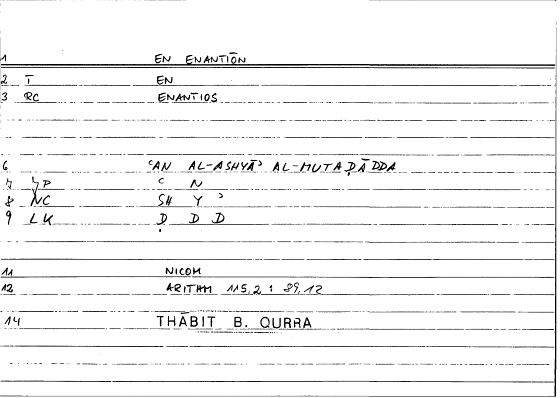 1 EN ENANTIŌN
2 T EN
3 RC ENANTIOS
6 ʿAN AL-ASHYĀʾ AL-MUTAḌĀDDA
7 SP ʿ N
8 NC SH Y ʾ
9 LK Ḍ D D
11 NICOM
12 ARITHM 115,2 : 89,12
14 THĀBIT B. QURRA